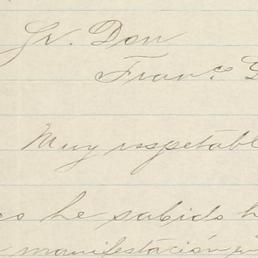 Sr. Don
Franc.º
Muy respetabl
he sabido
manifestación